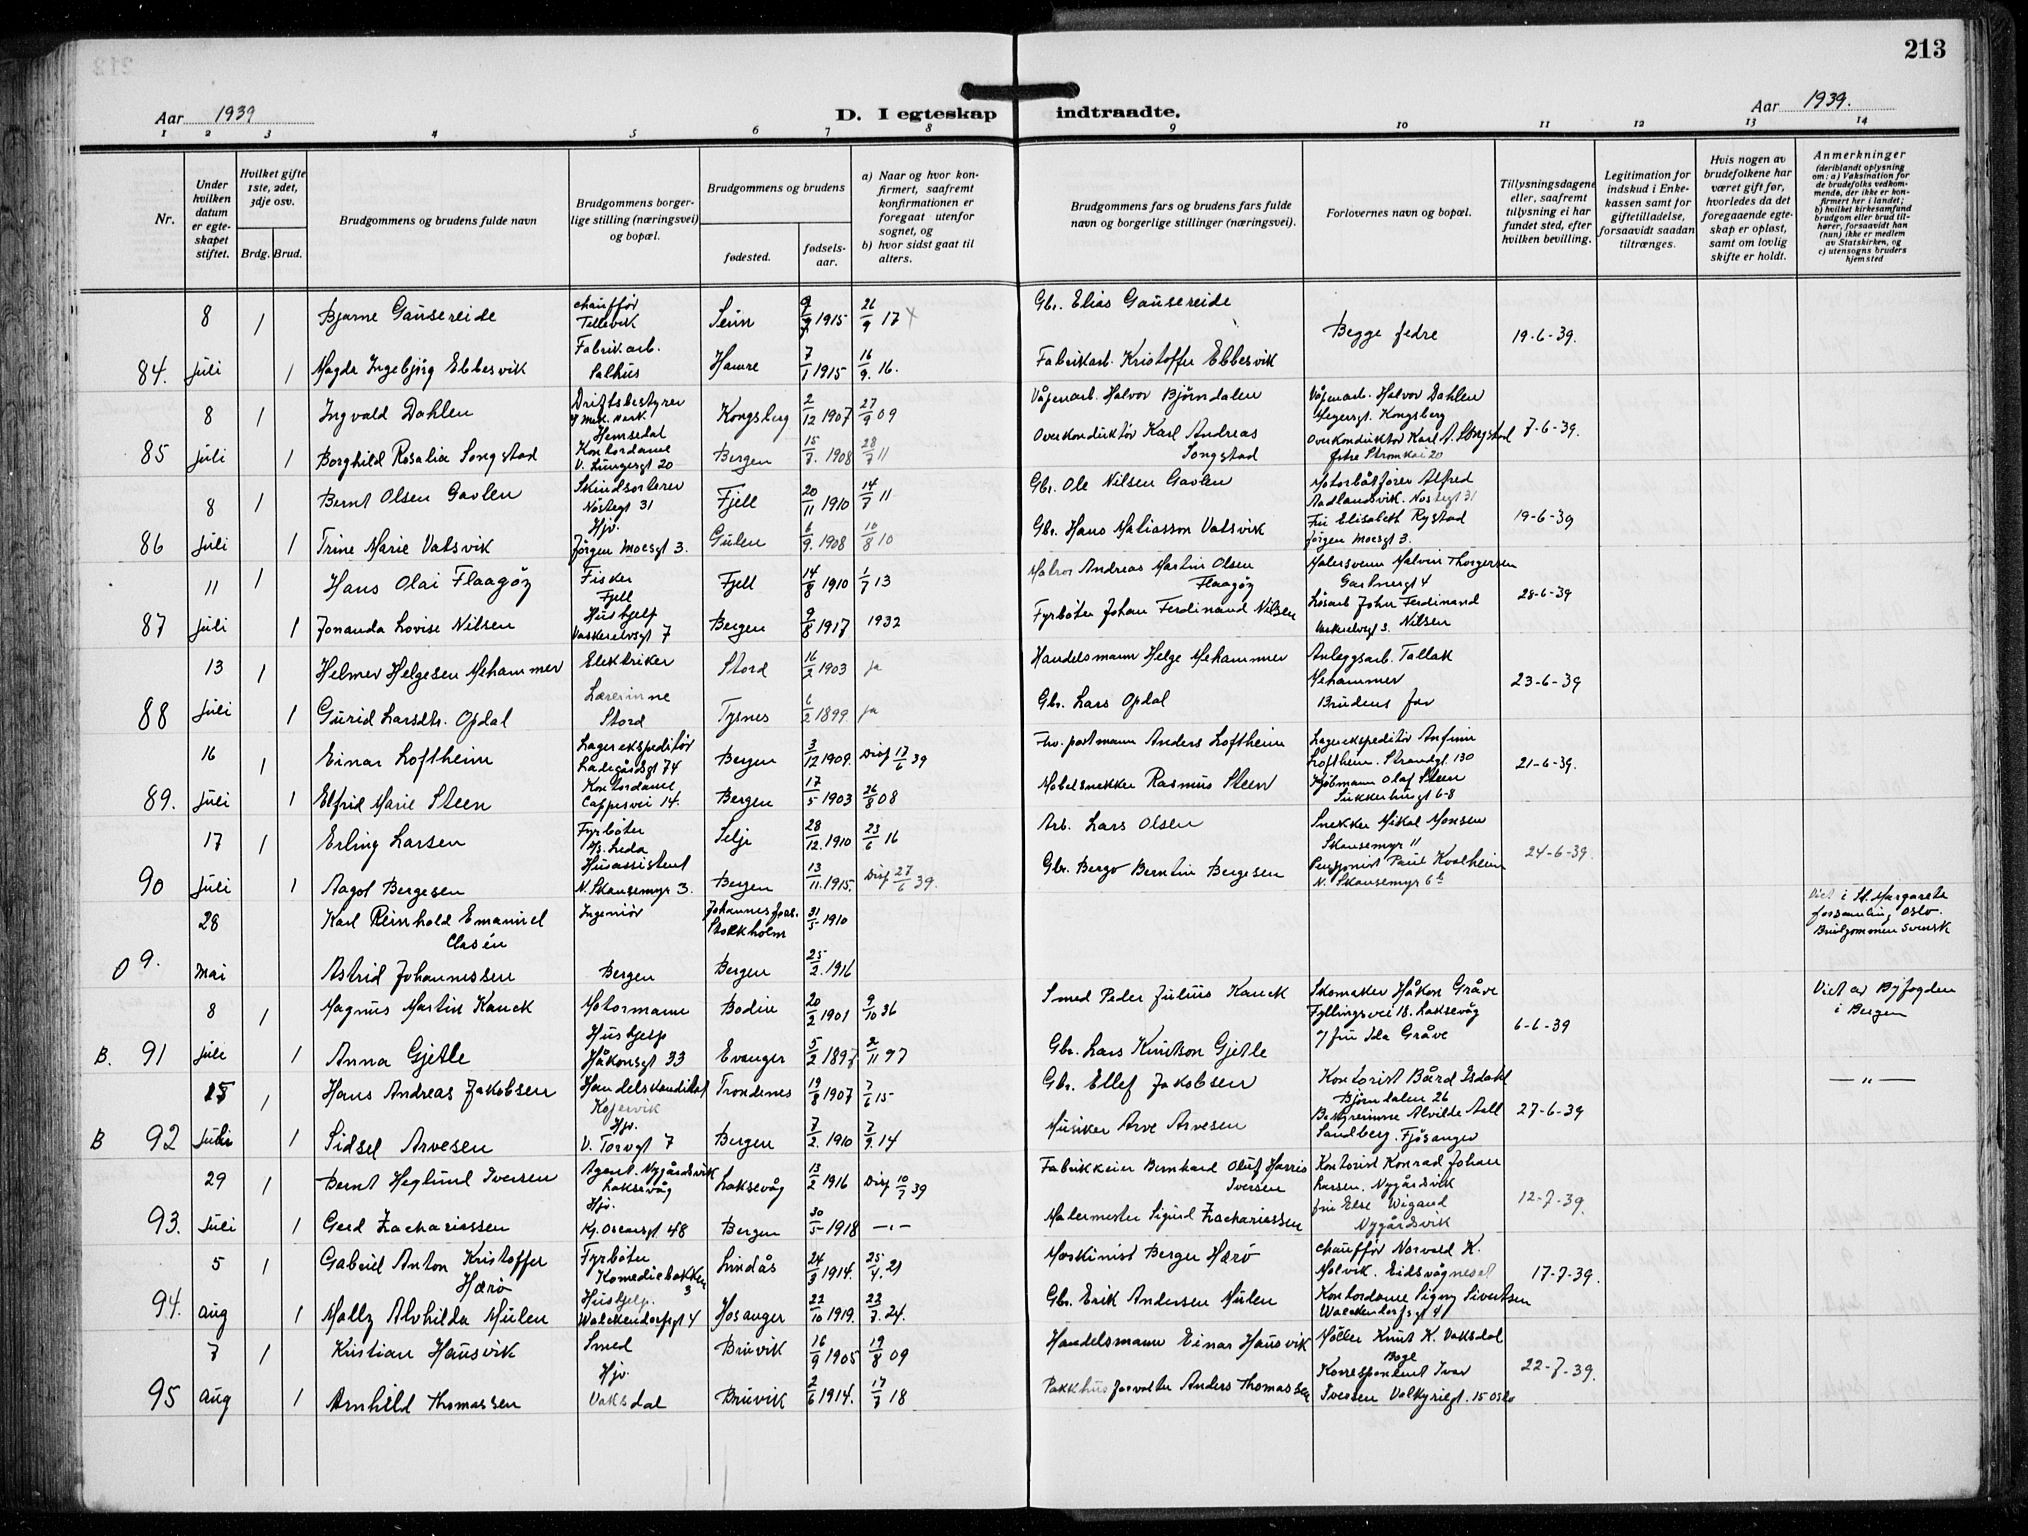 213
Aar 1939
D. I egteskap
indtraadte.
Aar 1939.
1 2 3 4 5 6 7 8 9 10 11 12 13 14
Nr.
Under hvilken datum er egteskapet stiftet.
Hvilket gifte 1ste, 2det, 3dje osv.
Brdg. Brud.
Brudgommens og brudens fulde navn
Brudgommens borgerlige stilling (næringsvei) og bopæl.
Brudgommens og brudens
fødested.
fødselsaar.
a) Naar og hvor konfirmert, saafremt konfirmationen er foregaat utenfor sognet, og
b) hvor sidst gaat til alters.
Brudgommens fars og brudens fars fulde navn og borgerlige stillinger (næringsvei).
Forlovernes navn og bopæl.
Tillysningsdagene eller, saafremt tillysning ei har fundet sted, efter hvilken bevilling.
Legitimation for indskud i Enkekassen samt for giftetilladelse, forsaavidt saadan tiltrænges.
Hvis nogen av brudefolkene har været gift før, hvorledes da det foregaaende egteskap er opløst, samt om lovlig skifte er holdt.
Anmerkninger (deriblandt oplysning om: a) Vaksination for de brudefolks vedkommende, der ikke er konfirmert her i landet; b) hvilket kirkesamfund brudgom eller brud tilhører, forsaavidt han (hun) ikke er medlem av Statskirken, og c) utensogns bruders hjemsted
8 1 Bjarne Gausereide chauffør Tellevik 1915 26/9 17 Gbr. Elias Gausereide Begge fedre 19-6-39.
84. Juli 1 Magda Ingebjørg Ebbesvik Fabrikarb. Salhus Hamre 7/1 1915 16/9. 16. Fabrikarb. Kristoffer Ebbesvik
8 1 Ingvald Dahlen Driftsbestyrer Hemsedal Kongsberg 2/12 1907 27/9 09 Våpenarb. Halvor Bjørndalen Våpenarb. Halvor Dahlen Kongsberg 7-6-39.
85 Juli 1 Borghild Rosalia Songstad Kontordame V. Lungegt 20 Bergen 15/7. 1908 28/7 11 Overkonduktør Karl Andreas Songstad Overkonduktør Karl A. Songstad
8 1 Bernt Olsen Gavlen Skindsorterer Nøstegt 31 Fjell 20/11 1910 14/7 11 Gbr. Ole Nilsen Gavlen Motorbåtfører Alfred Aadlandsvik. Nøstegt 31 19-6-39
86 Juli 1 Trine Marie Vatsvik Hjv. Jørgen Moesgt 3. Gulen 6/9. 1908 10/8 10 Gbr. Hans Matiasson Vatsvik Fru Elisabeth Rystad Jørgen Moesgt 3.
11 1 Hans Olai Flaagøy Fisker Fjell Fjell 14/8 1910 1/7 13 Matros Andreas Martin Olsen Flaagøy Malersvenn Malvin Thorgersen Gartnergt 4 28-6-39
87 Juli 1 Jonanda Lovise Nilsen Hushjelp Vaskerelvsgt 7 Bergen 9/8 1917 1932 Fyrbøter Johan Ferdinand Nilsen Løsarb John Ferdinand Nilsen
13 1 Helmer Helgesen Mehammer Elektriker Stord 16/2 1903 ja Handelsmann Helge Mehammer Anleggsarb. Tallak Mehammer 23-6-39
88 Juli 1 Gurid Larsdtr. Opdal Lærerinne Stord Tysnes 6/2 1899. ja Gbr. Lars Opdal Brudens far
16 1 Einar Loftheim Lagerekspeditør Ladegårdsgt 74 Bergen 3/12 1909. Disp 17/6 39 Fhv. postmann Anders Loftheim Lagerekspeditør Anfinn Loftheim. Strandgt. 130 21-6-39.
89. Juli 1 Elfrid Marie Steen Kontordame Cappesvei 14. Bergen 17/5 1903 26/8 08 Møbelsnekker Rasmus Steen Kjøbmann Olaf Steen Sukkerhusgt 6-8
17 1 Erling Larsen Fyrbøter D/S. Leda Selje 28/12. 1910 23/6 16 Arb. Lars Olsen Snekker Mikal Monsen Skansemyr 11 24-6-39.
90 Juli 1 Aagot Bergesen Husassistent N. Skansemyr 3. Bergen 13/11. 1915. Disp 27/6 39. Gbr. Bergo Berntin Bergesen Pensjonist Paul Kvalheim N. Skansemyr 6
28 Karl Reinhold Emanuel Clasén Ingeniør Johannes fors. Stockholm 31/5 1910 Viet i St. Margareta forsamling Oslo. Brudgommen svensk
0 9. Mai Astrid Johannessen Bergen Bergen 25/2. 1916
8 1 Magnus Martin Kanck Motormann Bodin 20/2 1901 9/10 36 Smed Peder Julius Kanck Skomaker Håkon Gråve Fyllingsvei 18. Laksevåg 6-6-39 Viet av Byfogden i Bergen
B. 91 Juli 1 Anna Gjetle Hushjelp Håkonsgt 33 Evanger 5/2 1897 2/11 97 Gbr. Lars Knutson Gjetle Fru Ida Gråve
15 1 Hans Andreas Jakobsen Handelskandidat Trondenes 19/8 1907 7/6 15 Gbr. Ellef Jakobsen Kontorist Bård Isdahl Bjørndalen 26 27-6-39 —"—
B 92 Juli 1 Sidsel Arvesen Hjv. V. Torvgt 7 Bergen 7/2. 1910 7/9. 14 Musiker Arve Arvesen Bestyrerinne Alvilde Aall Sandberg. Fjøsanger
29 1 Bernt Heglund Iversen Agent. Nygårdsvik Laksevåg Laksevåg 13/2 1916 Disp 10/7 39 Fabrikkeier Bernhard Oluf Harris Iversen Kontorist Konrad Johan Larsen. Nygårdsvik 12-7-39.
93. Juli 1 Gerd Zachariassen Hjv. Kg. Oscarsgt 48 Bergen 30/5 1918 —"— Malermester Sigurd Zachariassen fru Else Wigand Nygårdsvik
5 1 Gabriel Anton Kristoffer Hærø Fyrbøter Komediebakken 3 Lindås 24/3 1914. 25/4. 21 Maskinist Berger Hærø chauffør Norvald K. Molvik. Eidsvågneset 17-7-39.
94. Aug 1 Mally Alvhilda Mulen Hushjelp. Walckendorfsgt 4 Hosanger 22/10 1919. 22/7. 24. Gbr. Erik Andersen Mulen Kontordame Signy Sivertsen Walckendorfsgt 4
7 1 Kristian Hausvik Smed Bruvik 16/9 1905 19/8 09 Handelsmann Einar Hausvik Møller Knut K. Vaksdal 22-7-39.
95 Aug 1 Arnhild Thomassen Hjv. Vaksdal Bruvik 2/6 1914. 17/7 18 Pakkhusforvalter Anders Thomassen Korrespondent Ivar Iversen Valkyriegt. 15 Oslo